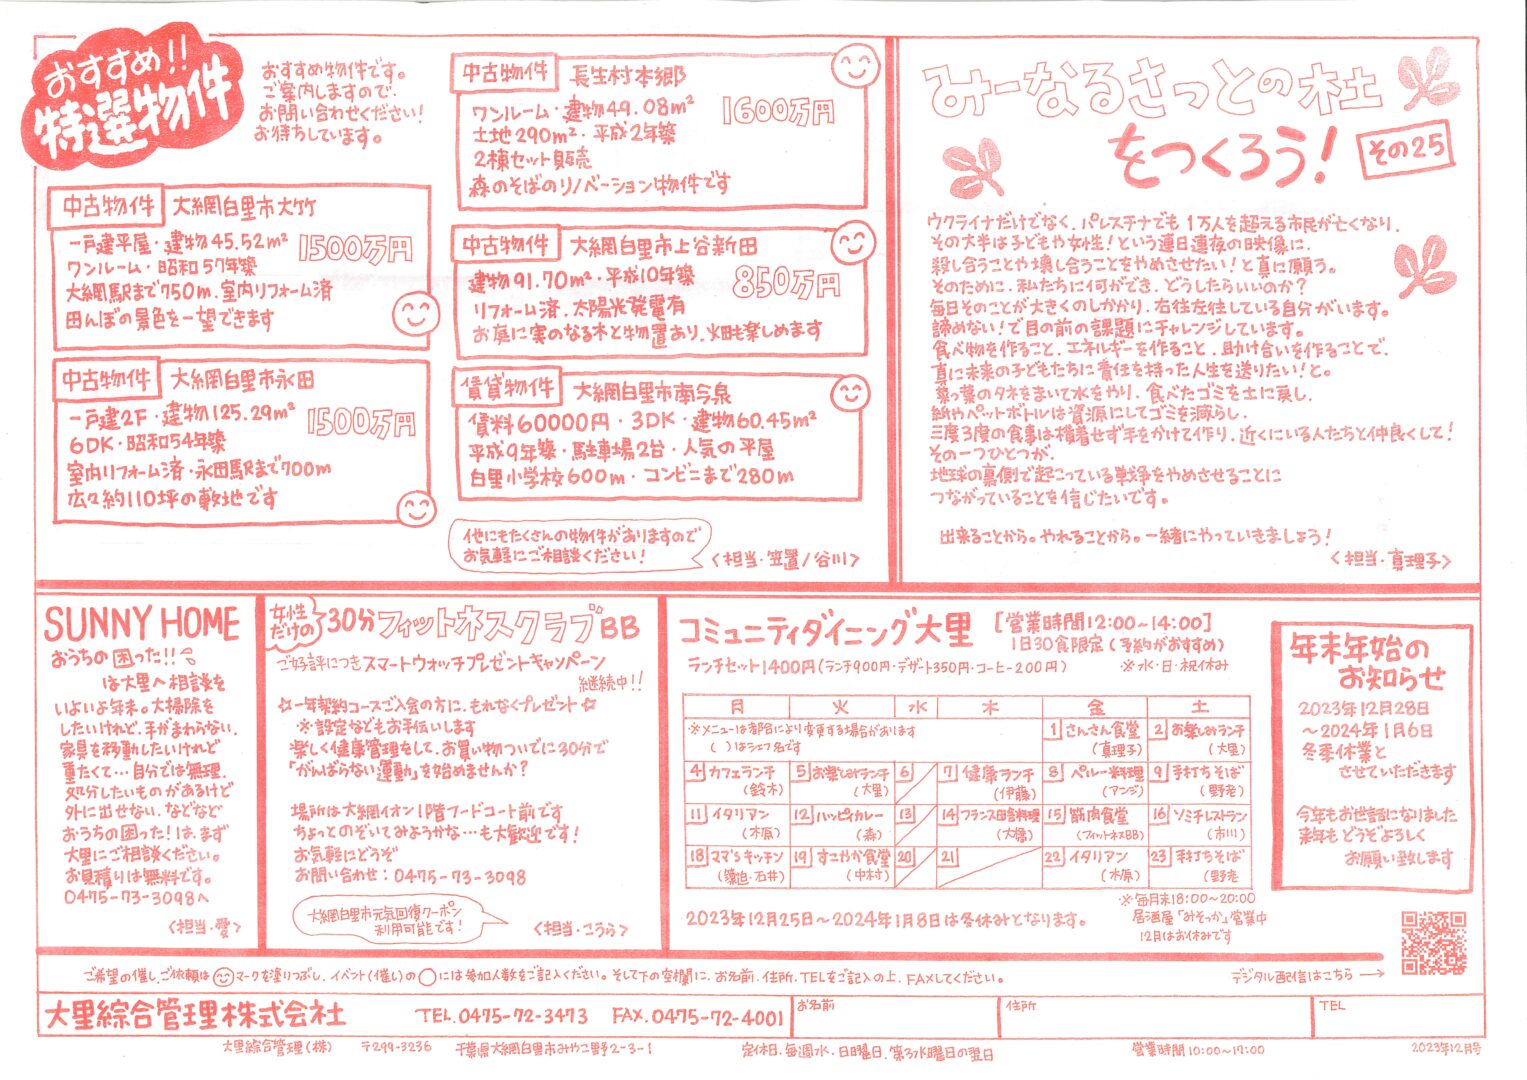 おすすめ!!
特選物件
おすすめ物件です。
ご案内しますので、
お問い合わせください!
お待ちしています。
中古物件 大網白里市大竹
一戸建平屋・建物45.52m² 1500万円
ワンルーム・昭和57年築
大網駅まで750m.室内リフォーム済
田んぼの景色を一望できます
中古物件 大網白里市永田
一戸建2F・建物125.29m² 1500万円
6DK・昭和54年築
室内リフォーム済・永田駅まで700m
広々約110坪の敷地です
中古物件 長生村本郷
ワンルーム・建物49.08m² 1600万円
土地290m²・平成2年築
2棟セット販売
森のそばのリノベーション物件です
中古物件 大網白里市上谷新田
建物91.70m²・平成10年築 850万円
リフォーム済.太陽光発電有
お庭に実のなる木と物置あり.畑も楽しめます
賃貸物件 大網白里市南今泉
賃料60000円・3DK・建物60.45m²
平成9年築・駐車場2台・人気の平屋
白里小学校600m・コンビニまで280m
他にもたくさんの物件がありますので
お気軽にご相談ください!
<担当・笠置/谷川>
みーなるさっとの杜
をつくろう! その25
ウクライナだけでなく、パレスチナでも1万人を超える市民が亡くなり、
その大半は子どもや女性!という連日連夜の映像に、
殺し合うことや壊し合うことをやめさせたい!と真に願う。
そのために、私たちに何ができ、どうしたらいいのか?
毎日そのことが大きくのしかかり、右往左往している自分がいます。
諦めない!で目の前の課題にチャレンジしています。
食べ物を作ること、エネルギーを作ること、助け合いを作ることで、
真に未来の子どもたちに責任を持った人生を送りたい!と。
菜っ葉のタネをまいて水をやり、食べたゴミを土に戻し、
紙やペットボトルは資源にしてゴミを減らし、
三度3度の食事は横着せず手をかけて作り、近くにいる人たちと仲良くして!
その一つひとつが、
地球の裏側で起こっている戦争をやめさせることに
つながっていることを信じたいです。
出来ることから。やれることから。一緒にやっていきましょう!
<担当・真理子>
SUNNY HOME
おうちの困った!!
は大里へ相談を
いよいよ年末。大掃除を
したいけれど、手がまわらない、
家具を移動したいけれど
重たくて…自分では無理、
処分したいものがあるけど
外に出せない、などなど
おうちの困った!は、まず
大里にご相談ください。
お見積りは無料です。
0475-73-3098へ
<担当・愛>
女性だけの30分フィットネスクラブBB
ご好評につきスマートウォッチプレゼントキャンペーン
継続中!!
☆一年契約コースご入会の方に、もれなくプレゼント☆
※設定などもお手伝いします
楽しく健康管理をして、お買い物ついでに30分で
「がんばらない運動」を始めませんか?
場所は大網イオン1階フードコート前です
ちょっとのぞいてみようかな…も大歓迎です!
お気軽にどうぞ
お問い合わせ:0475-73-3098
大網白里市元気回復クーポン
利用可能です!
<担当・こうら>
コミュニティダイニング大里 [営業時間12:00~14:00]
1日30食限定(予約がおすすめ)
ランチセット1400円(ランチ900円・デザート350円・コーヒー200円) ※水・日・祝休み
月 火 水 木 金 土
※メニューは都合により変更する場合があります
( )はシェフ名です
1 さんさん食堂 (真理子)
2 お楽しみランチ (大里)
4 カフェランチ (鈴木)
5 お楽しみランチ (大里)
6
7 健康ランチ (伊藤)
8 ペルー料理 (アンジ)
9 手打ちそば (野老)
11 イタリアン (木原)
12 ハッピーカレー (森)
13
14 フランス田舎料理 (大橋)
15 筋肉食堂 (フィットネスBB)
16 ソミチレストラン (市川)
18 ママ'sキッチン (築迫・石井)
19 すこやか食堂 (中村)
20
21
22 イタリアン (木原)
23 手打ちそば (野老)
2023年12月25日~2024年1月8日は冬休みとなります。
※毎月末18:00~20:00
居酒屋「みそっか」営業中
12月はお休みです
年末年始の
お知らせ
2023年12月28日
~2024年1月6日
冬季休業と
させていただきます
今年もお世話になりました
来年もどうぞよろしく
お願い致します
ご希望の催し、ご依頼はマークを塗りつぶし、イベント(催し)の○には参加人数をご記入ください。そして下の空欄に、お名前、住所、TELをご記入の上、FAXしてください。
デジタル配信はこちら→
大里綜合管理株式会社 TEL.0475-72-3473 FAX.0475-72-4001
お名前
住所
TEL
大里綜合管理(株) 〒299-3236 千葉県大網白里市みやこ野2-3-1 定休日.毎週水・日曜日、第3水曜日の翌日 営業時間10:00~17:00 2023年12月号